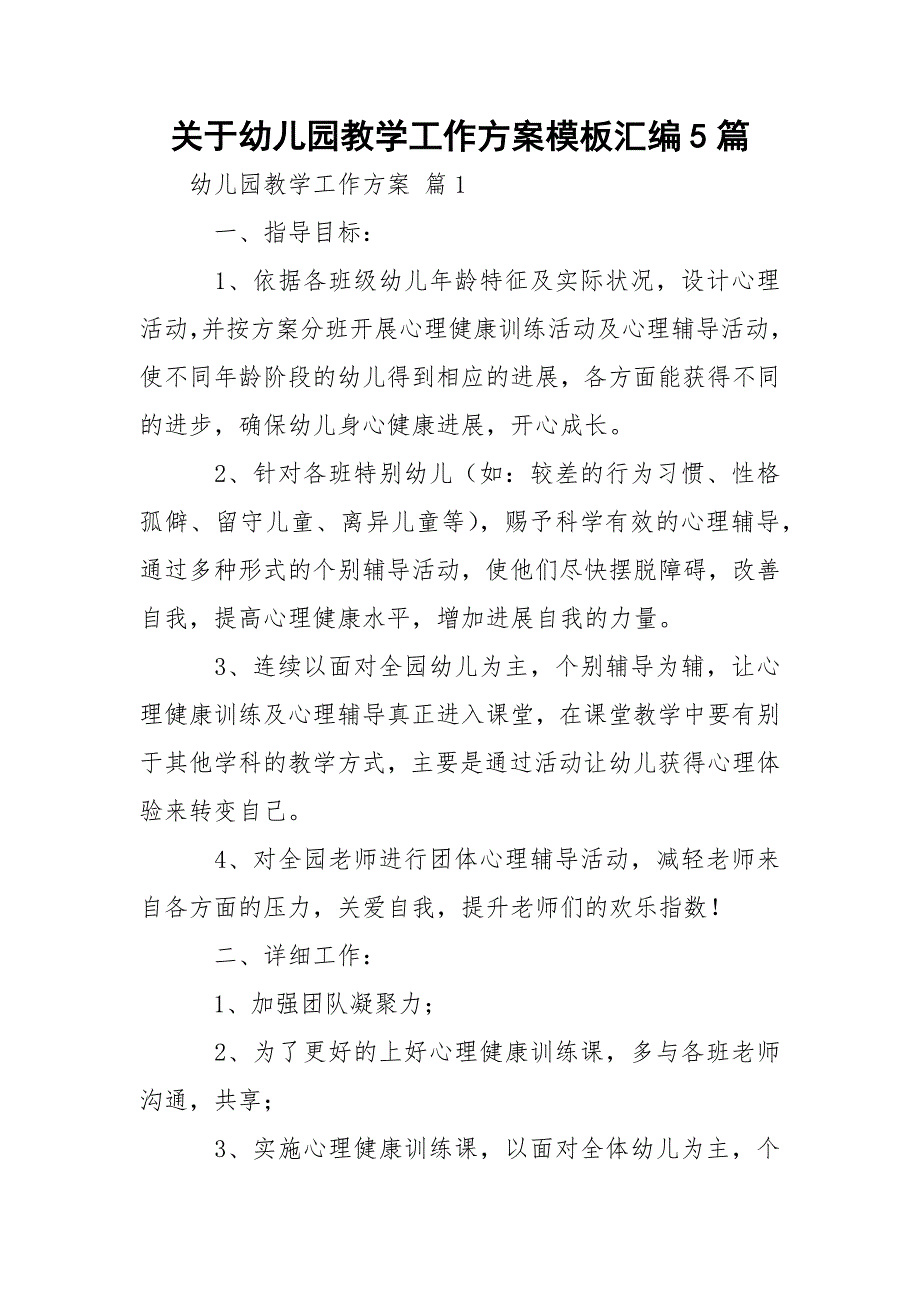 关于幼儿园教学工作方案模板汇编5篇
幼儿园教学工作方案 篇1
一、指导目标：
1、依据各班级幼儿年龄特征及实际状况，设计心理
活动，并按方案分班开展心理健康训练活动及心理辅导活动，
使不同年龄阶段的幼儿得到相应的进展，各方面能获得不同
的进步，确保幼儿身心健康进展，开心成长。
2、针对各班特别幼儿（如：较差的行为习惯、性格
孤僻、留守儿童、离异儿童等），赐予科学有效的心理辅导，
通过多种形式的个别辅导活动，使他们尽快摆脱障碍，改善
自我，提高心理健康水平，增加进展自我的力量。
3、连续以面对全园幼儿为主，个别辅导为辅，让心
理健康训练及心理辅导真正进入课堂，在课堂教学中要有别
于其他学科的教学方式，主要是通过活动让幼儿获得心理体
验来转变自己。
4、对全园老师进行团体心理辅导活动，减轻老师来
自各方面的压力，关爱自我，提升老师们的欢乐指数！
二、详细工作：
1、加强团队凝聚力；
2、为了更好的上好心理健康训练课，多与各班老师
沟通，共享；
3、实施心理健康训练课，以面对全体幼儿为主，个